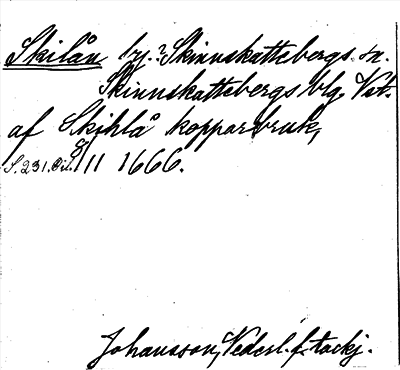 Skilån by.? Skinnskattebergs sn.
Skinnskattebergs blg Vst.
af Skihlå kopparbruk,
S. 231. Bil. 8/11 1666.
Johansson, Vederl. f. tackj.